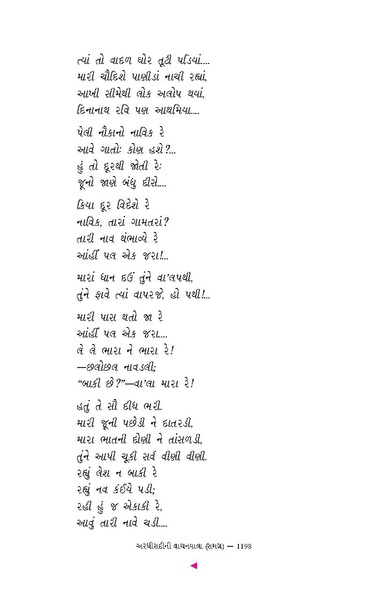 ત્યાં તો વાદળ ઘોર તૂટી પડિયાં....
મારી ચૌદિશે પાણીડાં નાચી રહ્યાં,
આખી સીમેથી લોક અલોપ થયાં,
દિનાનાથ રવિ પણ આથમિયા....
પેલી નૌકાનો નાવિક રે
આવે ગાતોઃ કોણ હશે?...
હું તો દૂરથી જોતી રેઃ
જૂનો જાણે બંધુ દીસે....
કિયા દૂર વિદેશે રે
નાવિક, તારાં ગામતરાં?
તારી નાવ થંભાવ્યે રે
આંહીં પલ એક જરા!...
મારાં ધાન દઉં તુંને વા'લપથી,
તુંને ફાવે ત્યાં વાપરજે, હો પથી!...
મારી પાસ થતો જા રે
આંહીં પલ એક જરા....
લે લે ભારા ને ભારા રે!
—છલોછલ નાવડલી;
“બાકી છે?”—વા'લા મારા રે!
હતું તે સૌ દીધ ભરી.
મારી જૂની પછેડી ને દાતરડી,
મારા ભાતની દોણી ને તાંસળડી,
તુંને આપી ચૂકી સર્વ વીણી વીણી.
રહ્યું લેશ ન બાકી રે
રહ્યું નવ કંઈયે પડી;
રહી હું જ એકાકી રે,
આવું તારી નાવે ચડી....
અરધીસદીની વાચનયાત્રા (સમગ્ર) — 1195